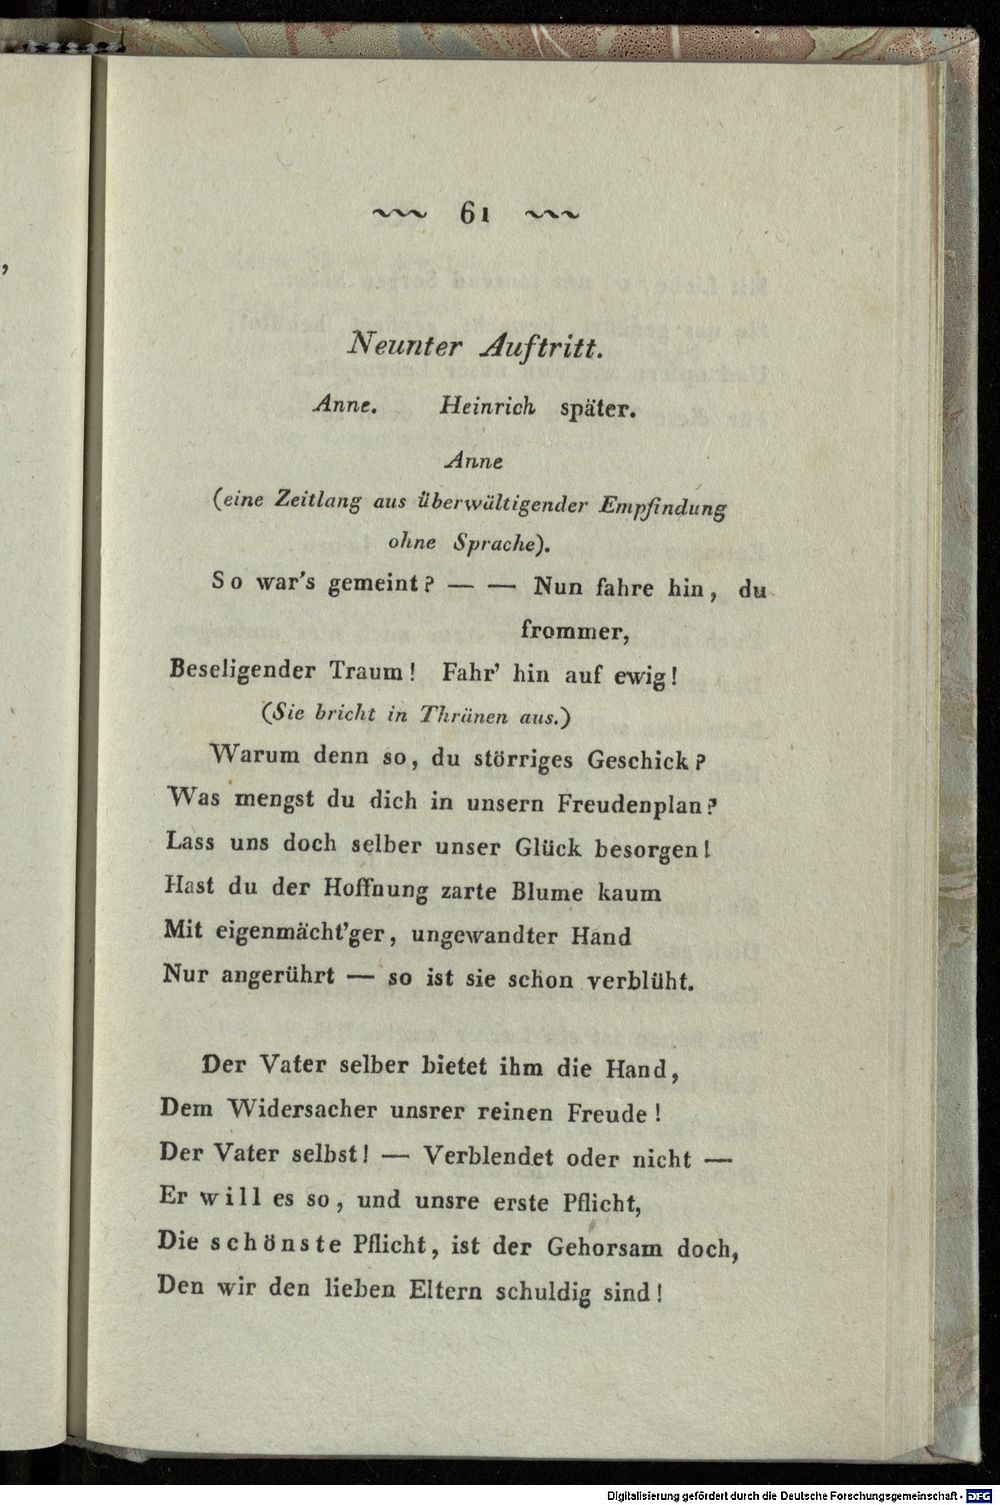 61
Neunter Auftritt.
Anne. Heinrich später.
Anne
(eine Zeitlang aus überwältigender Empfindung
ohne Sprache).
So war's gemeint? — — Nun fahre hin, du
frommer,
Beseligender Traum! Fahr' hin auf ewig!
(Sie bricht in Thränen aus.)
Warum denn so, du störriges Geschick?
Was mengst du dich in unsern Freudenplan?
Lass uns doch selber unser Glück besorgen!
Hast du der Hoffnung zarte Blume kaum
Mit eigenmächt'ger, ungewandter Hand
Nur angerührt — so ist sie schon verblüht.
Der Vater selber bietet ihm die Hand,
Dem Widersacher unsrer reinen Freude!
Der Vater selbst! — Verblendet oder nicht —
Er will es so, und unsre erste Pflicht,
Die schönste Pflicht, ist der Gehorsam doch,
Den wir den lieben Eltern schuldig sind!
Digitalisierung gefördert durch die Deutsche Forschungsgemeinschaft - DFG